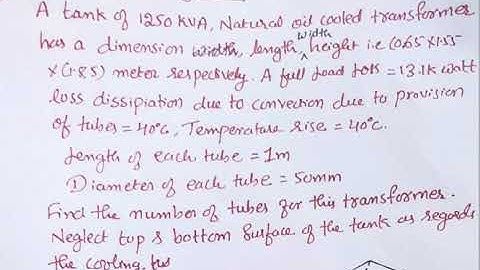 A tank of 1250 KVA, Natural oil cooled transformer
has a dimension width, length, width height i.e (0.65 x 1.55
x (1.85) meter respectively. A full load loss = 13.1k watt
loss dissipiation due to convection due to provision
of tubes = 40°C, Temperature rise = 40°C.
length of each tube = 1m
Diameter of each tube = 50mm
Find the number of tubes for this transformer.
Neglect top & bottom surface of the tank as regards
the cooling.